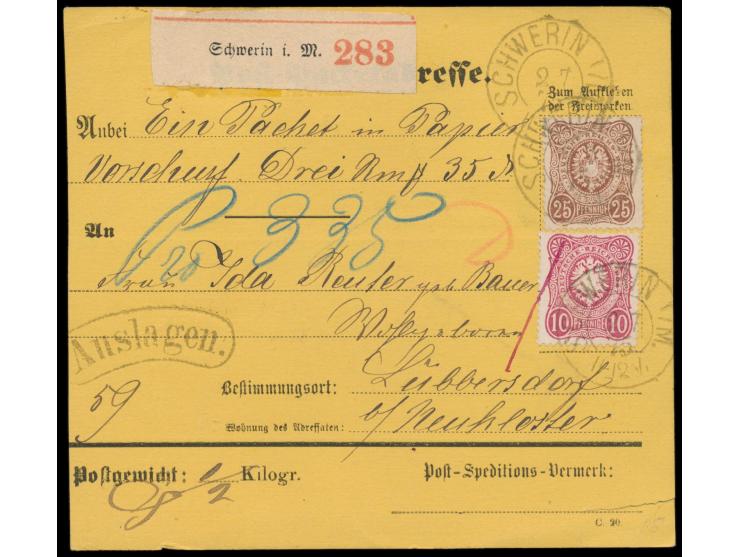 Schwerin i. M. 283
resse.
SCHWERIN I/M.
2 7
Zum Aufkleben
der Freimarken
Anbei Ein Packet in Papier
Vorschuß Drei Rm 35
25 PFENNIGE 25
335
An
Frau Ida Reuter geb. Bauer
10 PFENNIGE 10
Wohlgeboren
Auslagen.
Bestimmungsort: Lübbersdorf
59
Wohnung des Adressaten: b/ Neukloster
Postgewicht: 1/2 Kilogr.
Post-Speditions-Vermerk:
C. 20.